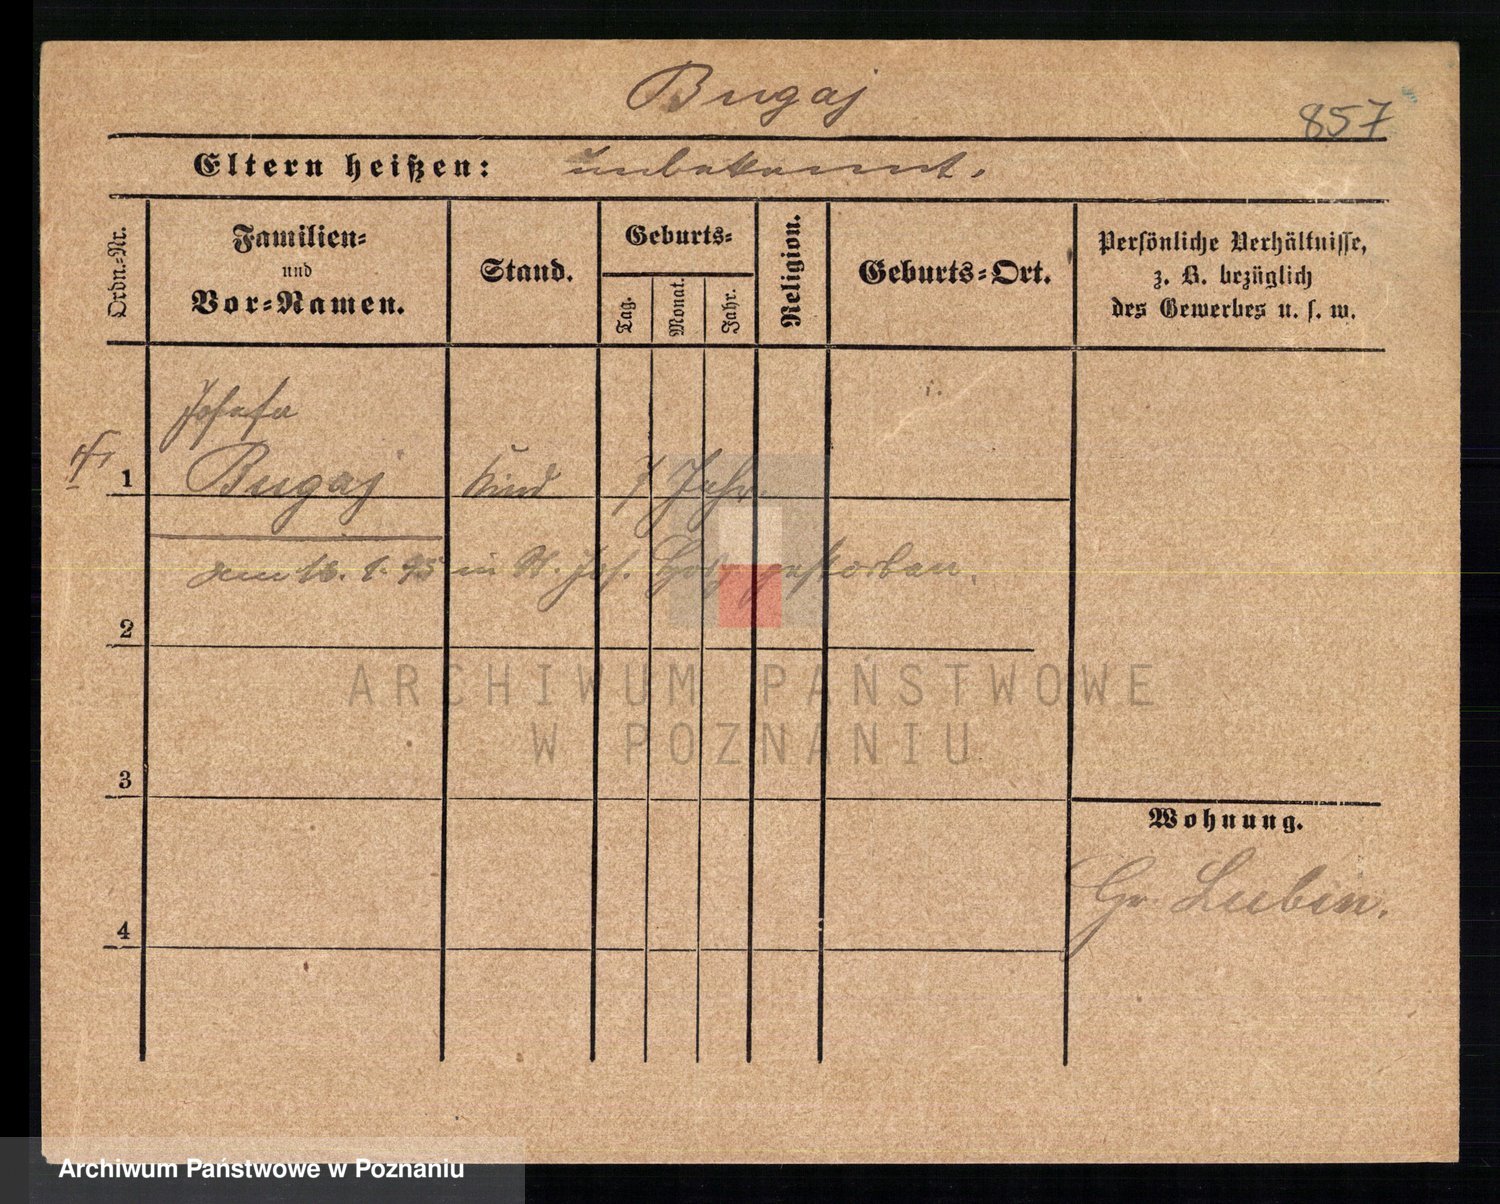 Bugaj
857
Eltern heißen: unbekannt.
Ordn.-Nr.
Familien-
und
Vor-Namen.
Stand.
Geburts-
Tag.
Monat.
Jahr.
Religion.
Geburts-Ort.
Persönliche Verhältnisse,
z. B. bezüglich
des Gewerbes u. s. w.
Josefa
1 Bugaj Kind 7 Jahr.
am 18. 1. 95 in St. Jos. gestorben.
2
3
4
Wohnung.
Gr. Lubin.
ARCHIWUM PAŃSTWOWE
W POZNANIU
Archiwum Państwowe w Poznaniu